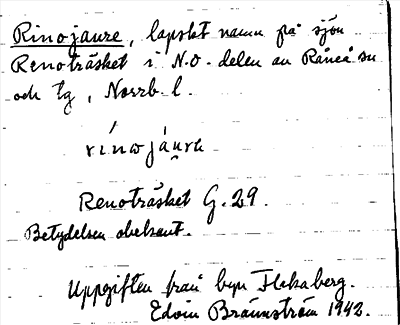 Rinojaure, lapskt namn på sjön
Renoträsket i N.O. delen av Råneå sn
och tg, Norrb. l.
rínøjáu̯rɛ
Renoträsket G. 29.
Betydelsen obekant.
Uppgiften från byn Flakaberg.
Edvin Brännström 1942.